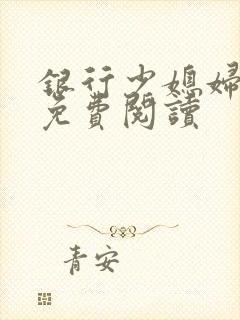 銀行少媳婦
免費閱讀
青安